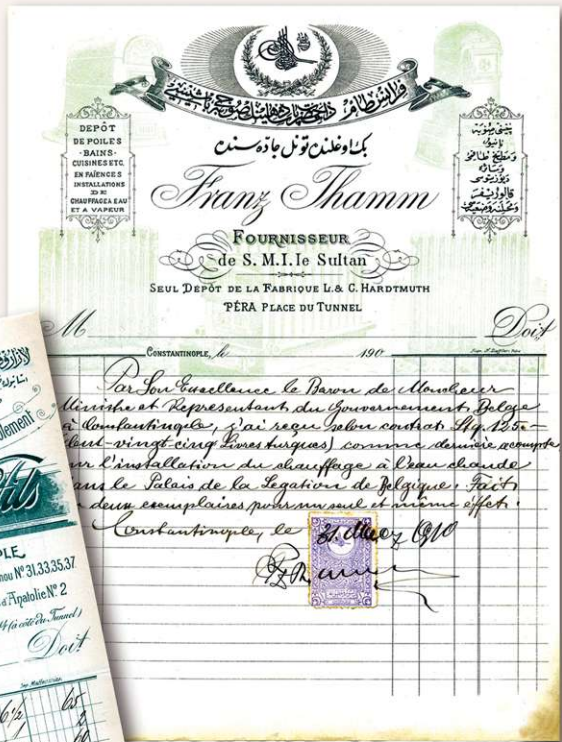 بك اوغلنده تونل جاده سنده
DEPÔT
DE POILES
- BAINS -
CUISINES ETC.
EN FAÏENCES
INSTALLATIONS
DE
CHAUFFAGE A EAU
ET A VAPEUR
Franz Thamm
FOURNISSEUR
de S. M. I. le Sultan
SEUL DÉPÔT DE LA FABRIQUE L. & C. HARDTMUTH
PÉRA PLACE DU TUNNEL
M
Doit
CONSTANTINOPLE, le 190
Par Son Excellence le Baron de Moncheur
Ministre et Représentant du Gouvernement Belge
à Constantinople, j'ai reçu selon contrat Ltq. 125.-
(Cent-vingt-cinq Livres turques) comme dernière acompte
l'installation du chauffage à l'eau chaude
dans le Palais de la Legation de Belgique. Fait
deux exemplaires pour un seul et même effet.
Constantinople, le 31. Mars 1910
ement
Fils
PLE
Nº 31.33.35.37
d'Anatolie Nº 2
(à côté du Tunnel)
Doit
6 1/2 65
2